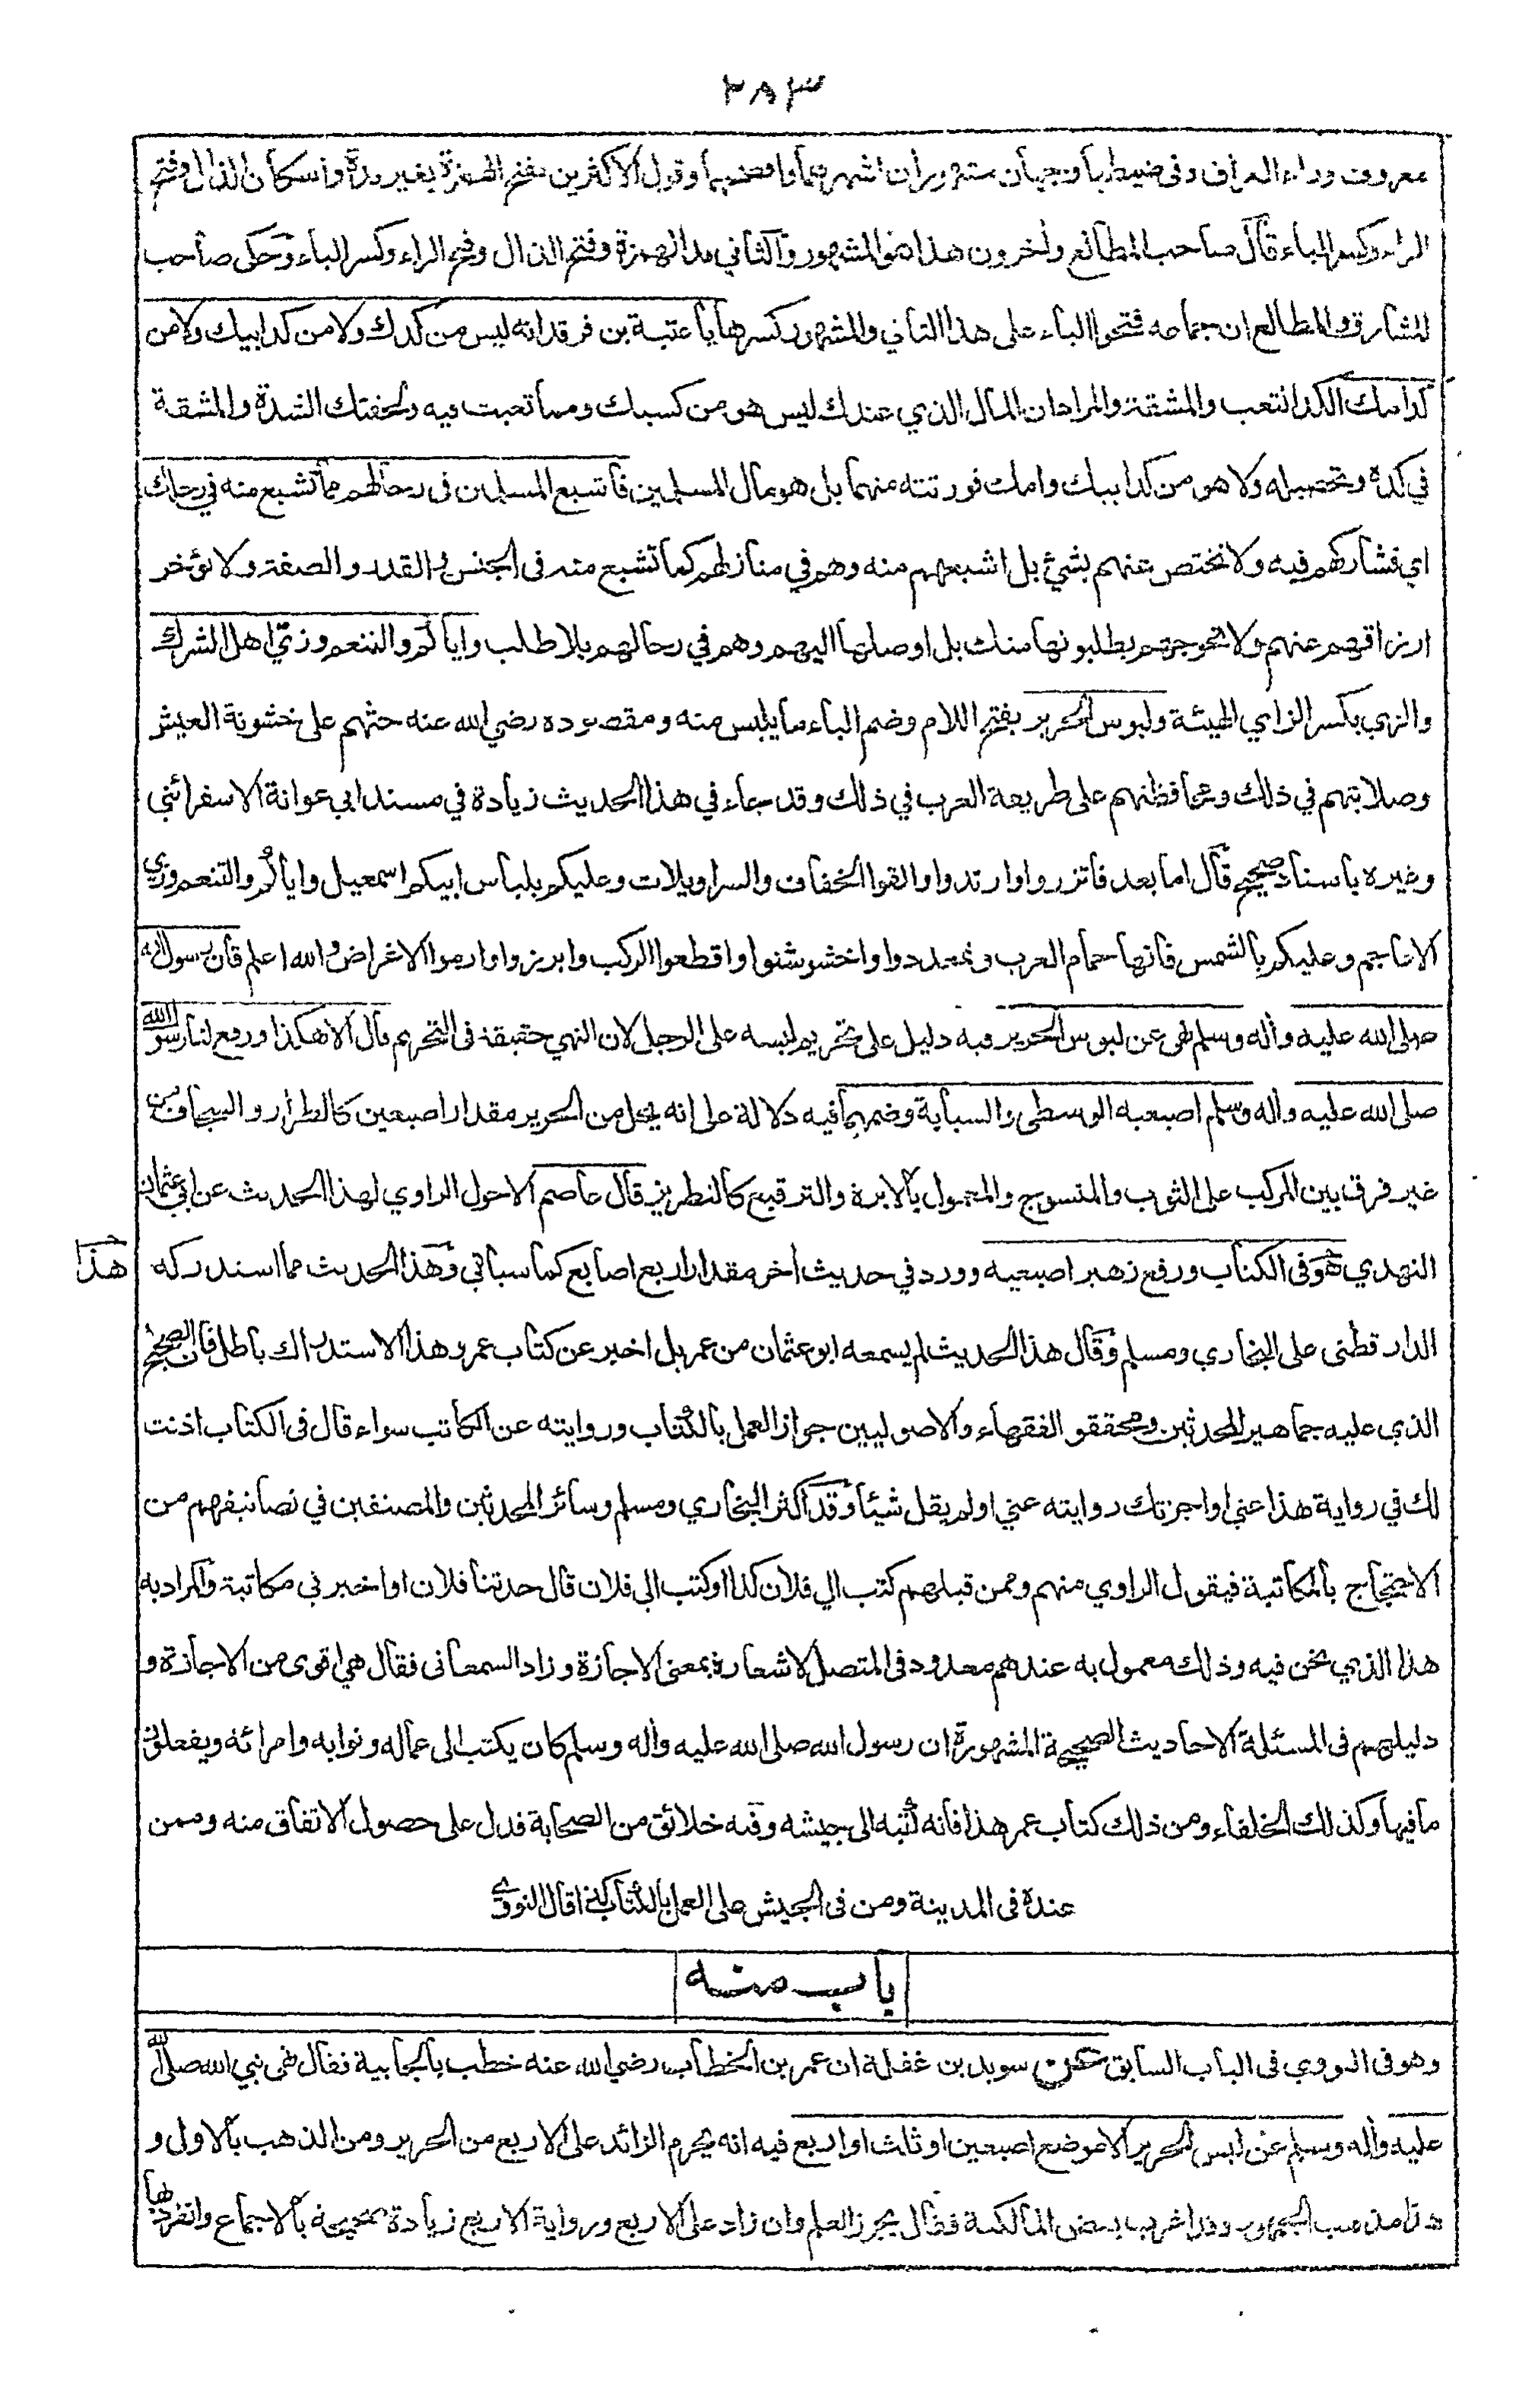 ٢٨٣
معروف وراء العراق وفي ضبطها وجهان مشهوران اشهرهما وافصحهما وقول الاكثرين بفتح الهمزة بغير مدة واسكان الذال وفتح
الراء وكسر الباء قال صاحب المطالع وأخرون هذا هو المشهور والثاني مد الهمزة وفتح الذال وفتح الراء وكسر الباء وحكى صاحب
المشارق والمطالع ان جماعه فتحوا الباء على هذا الثاني والمشهور كسرها يا عتبة بن فرقد انه ليس من كدك ولا من كد ابيك ولا من
كد امك الكد التعب والمشقة والمراد ان المال الذي عندك ليس هو من كسبك ومما تعبت فيه ولحقتك الشدة والمشقة
في كده وتحصيله ولا هو من كد ابيك وامك فورثته منهما بل هو مال المسلمين فاشبع المسلمين في رحالهم مما تشبع منه في رحلك
اي فشاركهم فيه ولا تختص عنهم بشئ بل اشبعهم منه وهم في منازلهم كما تشبع منه في الجنس والقدر والصفة ولا تؤخر
ارزاقهم عنهم ولا تحوجهم يطلبونها منك بل اوصلها اليهم وهم في رحالهم بلا طلب واياكم والتنعم وزيّ اهل الشرك
والزي بكسر الزاي الهيئة ولبوس الحرير بفتح اللام وضم الباء ما يلبس منه ومقصوده رضي الله عنه حثهم على خشونة العيش
وصلابتهم في ذلك ومحافظتهم على طريقة العرب في ذلك وقد جاء في هذا الحديث زيادة في مسند ابي عوانة الاسفرائني
وغيره باسناد صحيح قال اما بعد فاتزروا وارتدوا والقوا الخفاف والسراويلات وعليكم بلباس ابيكم اسمعيل واياكم والتنعم وزي
الاعاجم وعليكم بالشمس فانها حمام العرب وتمعددوا واخشوشنوا واقطعوا الركب وابرزوا وارموا الاغراض والله اعلم فان رسول الله
صلى الله عليه وأله وسلم نهى عن لبوس الحرير فيه دليل على تحريم لبسه على الرجل لان النهي حقيقة في التحريم قال الا هكذا ورفع لنا رسول الله
صلى الله عليه وأله وسلم اصبعيه الوسطى والسبابة وضمهما فيه دلالة على انه يحل من الحرير مقدار اصبعين كالطراز والسجاف من
غير فرق بين المركب على الثوب والمنسوج والمعمول بالابرة والترقيع كالتطريز قال عاصم الاحول الراوي لهذا الحديث عن ابي عثمان
النهدي هو في الكتاب ورفع زهير اصبعيه وورد في حديث أخر مقدار اربع اصابع كما سيأتي وهذا الحديث مما استدركه هذا
الدارقطني على البخاري ومسلم وقال هذا الحديث لم يسمعه ابو عثمان من عمر بل اخبر عن كتاب عمر وهذا الاستدراك باطل فان الصحيح
الذي عليه جماهير المحدثين ومحققو الفقهاء والاصوليين جواز العمل بالكتاب وروايته عن الكاتب سواء قال في الكتاب اذنت
لك في رواية هذا عني او اجزتك روايته عني او لم يقل شيئا وقد اكثر البخاري ومسلم وسائر المحدثين والمصنفين في تصانيفهم من
الاحتجاج بالمكاتبة فيقول الراوي منهم وممن قبلهم كتب الي فلان كذا او كتب الي فلان قال حدثنا فلان او اخبرني مكاتبة والمراد به
هذا الذي نحن فيه وذلك معمول به عندهم معدود في المتصل لاشعاره بمعنى الاجازة وزاد السمعاني فقال هي اقوى من الاجازة و
دليلهم في المسئلة الاحاديث الصحيحة المشهورة ان رسول الله صلى الله عليه وأله وسلم كان يكتب الى عماله ونوابه وامرائه ويفعلون
ما فيها وكذلك الخلفاء ومن ذلك كتاب عمر هذا فانه كتبه الى جيشه وفيه خلائق من الصحابة فدل على حصول الاتفاق منه وممن
عنده في المدينة ومن في الجيش على العمل بالكتاب كذا قال النووي
باب منه
وهو في النووي في الباب السابق عن سويد بن غفلة ان عمر بن الخطاب رضي الله عنه خطب بالجابية فقال نهى نبي الله صلى الله
عليه وأله وسلم عن لبس الحرير الا موضع اصبعين او ثلث او اربع فيه انه يحرم الزائد على الاربع من الحرير ومن الذهب بالاولى و
هذا مذهب الجمهور وقد اغرب بعض المالكية فقال يجوز العلم وان زاد على الاربع ورواية الاربع زيادة صحيحة بالاجماع وانفرد بها